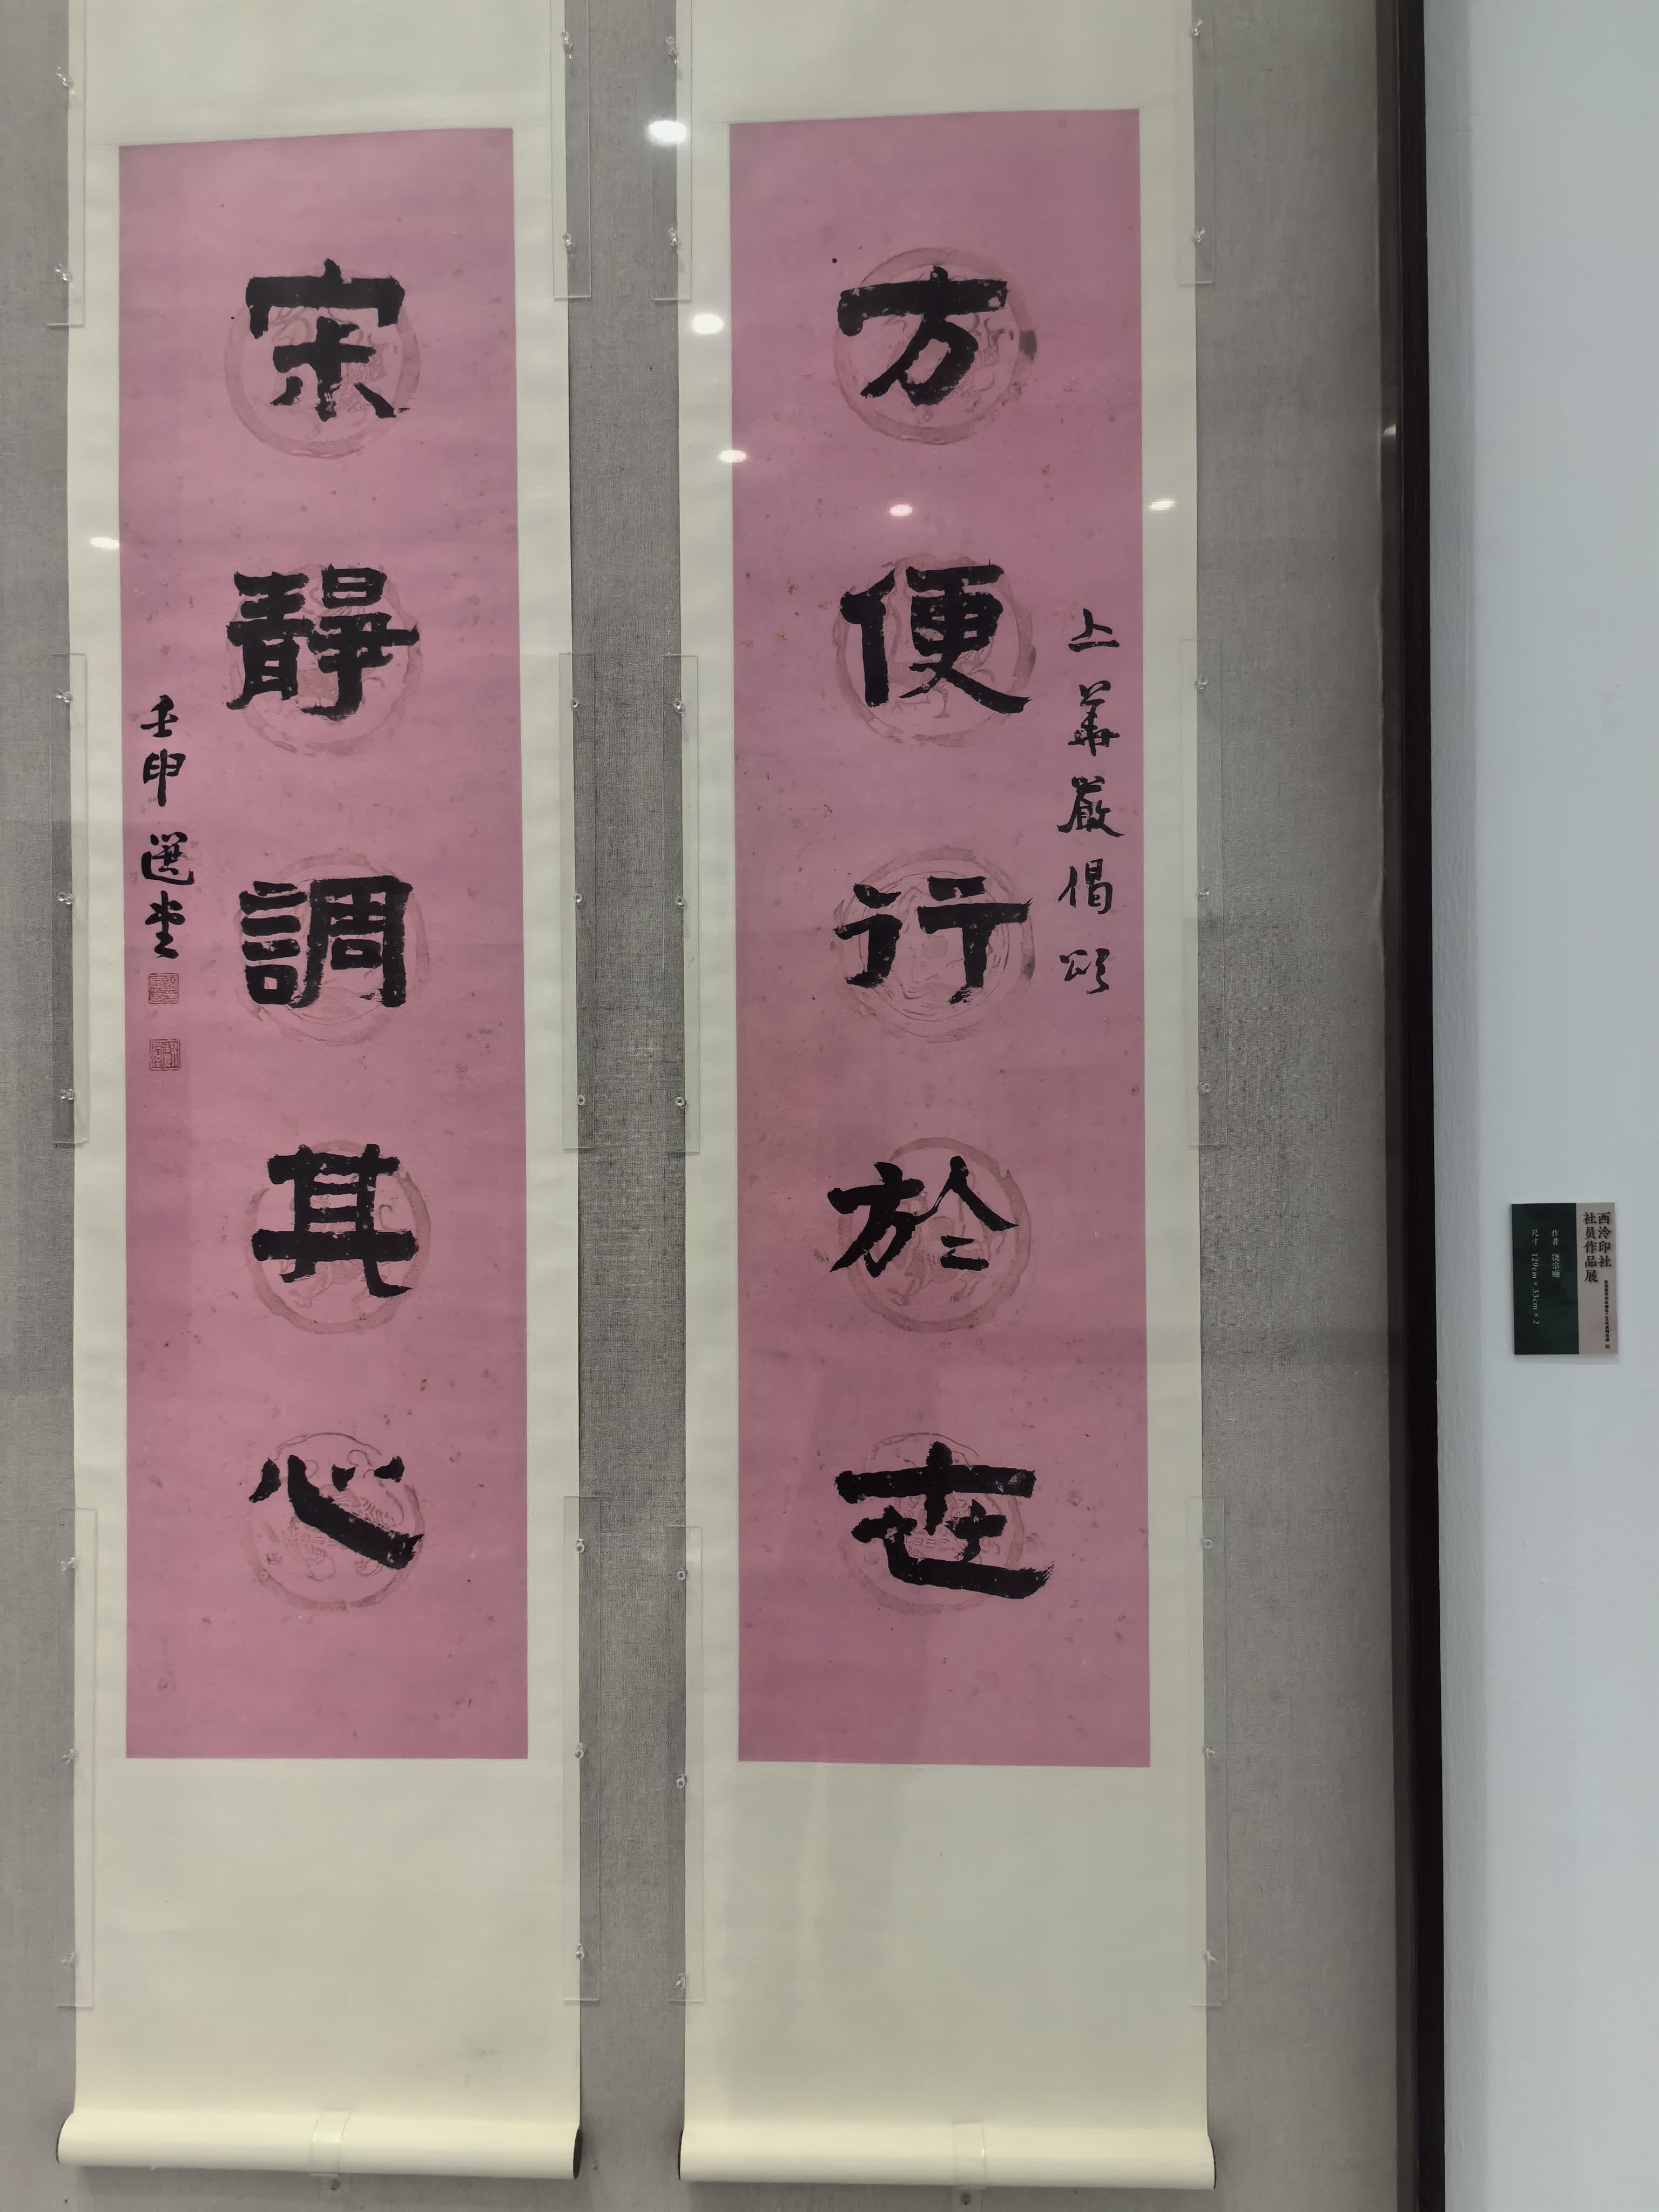 方便行於世
上華嚴偈頌
寂靜調其心
壬申 選堂
西泠印社
社员作品展
作者 饶宗颐
尺寸 129cm×33cm×2